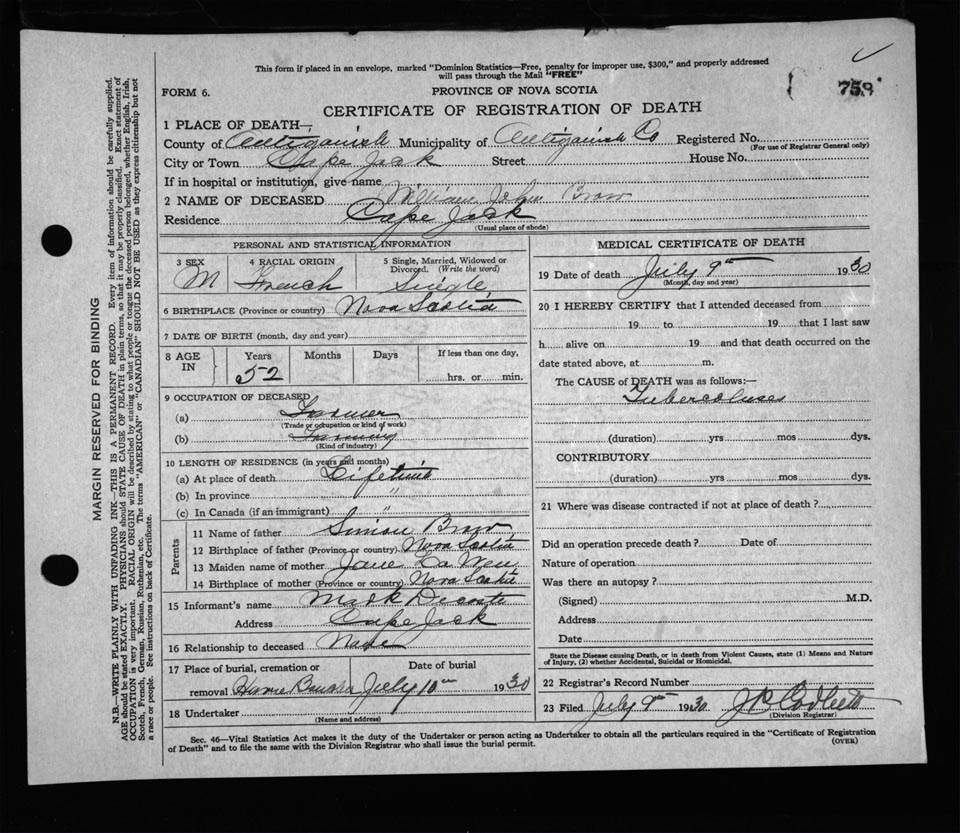 This form if placed in an envelope, marked "Dominion Statistics—Free, penalty for improper use, $300," and properly addressed
will pass through the Mail "FREE"
758
FORM 6.
PROVINCE OF NOVA SCOTIA
CERTIFICATE OF REGISTRATION OF DEATH
1 PLACE OF DEATH—
County of Antigonish Municipality of Antigonish Co Registered No.
(For use of Registrar General only)
City or Town Cape Jack Street House No.
If in hospital or institution, give name
2 NAME OF DECEASED William John Brow
Residence Cape Jack
(Usual place of abode)
PERSONAL AND STATISTICAL INFORMATION
3 SEX 4 RACIAL ORIGIN 5 Single, Married, Widowed or
Divorced. (Write the word)
M French Single
6 BIRTHPLACE (Province or country) Nova Scotia
7 DATE OF BIRTH (month, day and year)
8 AGE IN Years Months Days If less than one day,
52 hrs. or min.
9 OCCUPATION OF DECEASED
(a) Farmer
(Trade or occupation or kind of work)
(b) Farming
(Kind of industry)
10 LENGTH OF RESIDENCE (in years and months)
(a) At place of death Lifetime
(b) In province "
(c) In Canada (if an immigrant)
Parents
11 Name of father Simon Brow
12 Birthplace of father (Province or country) Nova Scotia
13 Maiden name of mother Jane
14 Birthplace of mother (Province or country) Nova Scotia
15 Informant's name Decoste
Address Cape Jack
16 Relationship to deceased
17 Place of burial, cremation or Date of burial
removal July 10th 1930
18 Undertaker
(Name and address)
MEDICAL CERTIFICATE OF DEATH
19 Date of death July 9th 1930
(Month, day and year)
20 I HEREBY CERTIFY that I attended deceased from
19 to 19 that I last saw
h alive on 19 and that death occurred on the
date stated above, at m.
The CAUSE of DEATH was as follows:—
Tuberculoses
(duration) yrs mos dys.
CONTRIBUTORY
(duration) yrs mos dys.
21 Where was disease contracted if not at place of death?
Did an operation precede death? Date of
Nature of operation
Was there an autopsy?
(Signed) M.D.
Address
Date
State the Disease causing Death, or in death from Violent Causes, state (1) Means and Nature
of Injury, (2) whether Accidental, Suicidal or Homicidal.
22 Registrar's Record Number
23 Filed July 9th 1930
(Division Registrar)
Sec. 46—Vital Statistics Act makes it the duty of the Undertaker or person acting as Undertaker to obtain all the particulars required in the "Certificate of Registration
of Death" and to file the same with the Division Registrar who shall issue the burial permit.
(OVER)
MARGIN RESERVED FOR BINDING
N.B.—WRITE PLAINLY WITH UNFADING INK—THIS IS A PERMANENT RECORD. Every item of information should be carefully supplied.
AGE should be stated EXACTLY. PHYSICIANS should STATE CAUSE OF DEATH in plain terms, so that it may be properly classified. Exact statement of
OCCUPATION is very important. RACIAL ORIGIN will be described by stating to what people or tongue the deceased person belonged, whether English, Irish,
Scotch, French, German, Russian, Ruthenian, etc. The terms "AMERICAN" or "CANADIAN" SHOULD NOT BE USED as they express citizenship but not
a race or people. See instructions on back of Certificate.